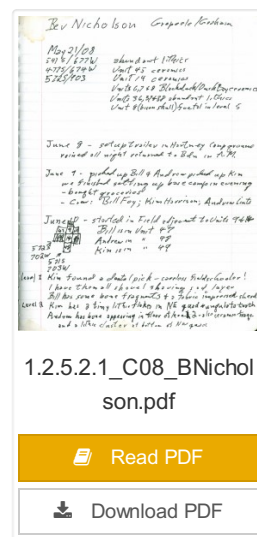 Bev Nicholson
May 21/08
abundant lithics
Unit 45 ceramics
Unit 19 ceramics
Units 6,7 & 8 Blackduck/Duck Bay ceramics
Units 36, abundant lithics
Unit 8 (burn shell) in level 5
June 8 - set up trailer in Hartney Campground
rained all night returned to Bdn in A.M.
June 9 - picked up Bill & Andrew picked up Kim
we finished setting up base camp in evening
- bought groceries
- Crew: Bill Foy; Kim Harrison; Andrew
June - started in Field adjacent to Units
Bill is in Unit 47
Andrew in " 48
Kim in " 49
Level 2 Kim found a dental pick - careless fieldschooler!
I have them all shovel shaving sod layer
Bill has some bone fragments & a fabric impressed sherd
Level 3 Kim has 3 tiny lithic flakes in NE quad
Andrew has bone appearing in
and a lithic cluster at bottom of NW quad
1.2.5.2.1_C08_BNichol
son.pdf
Read PDF
Download PDF